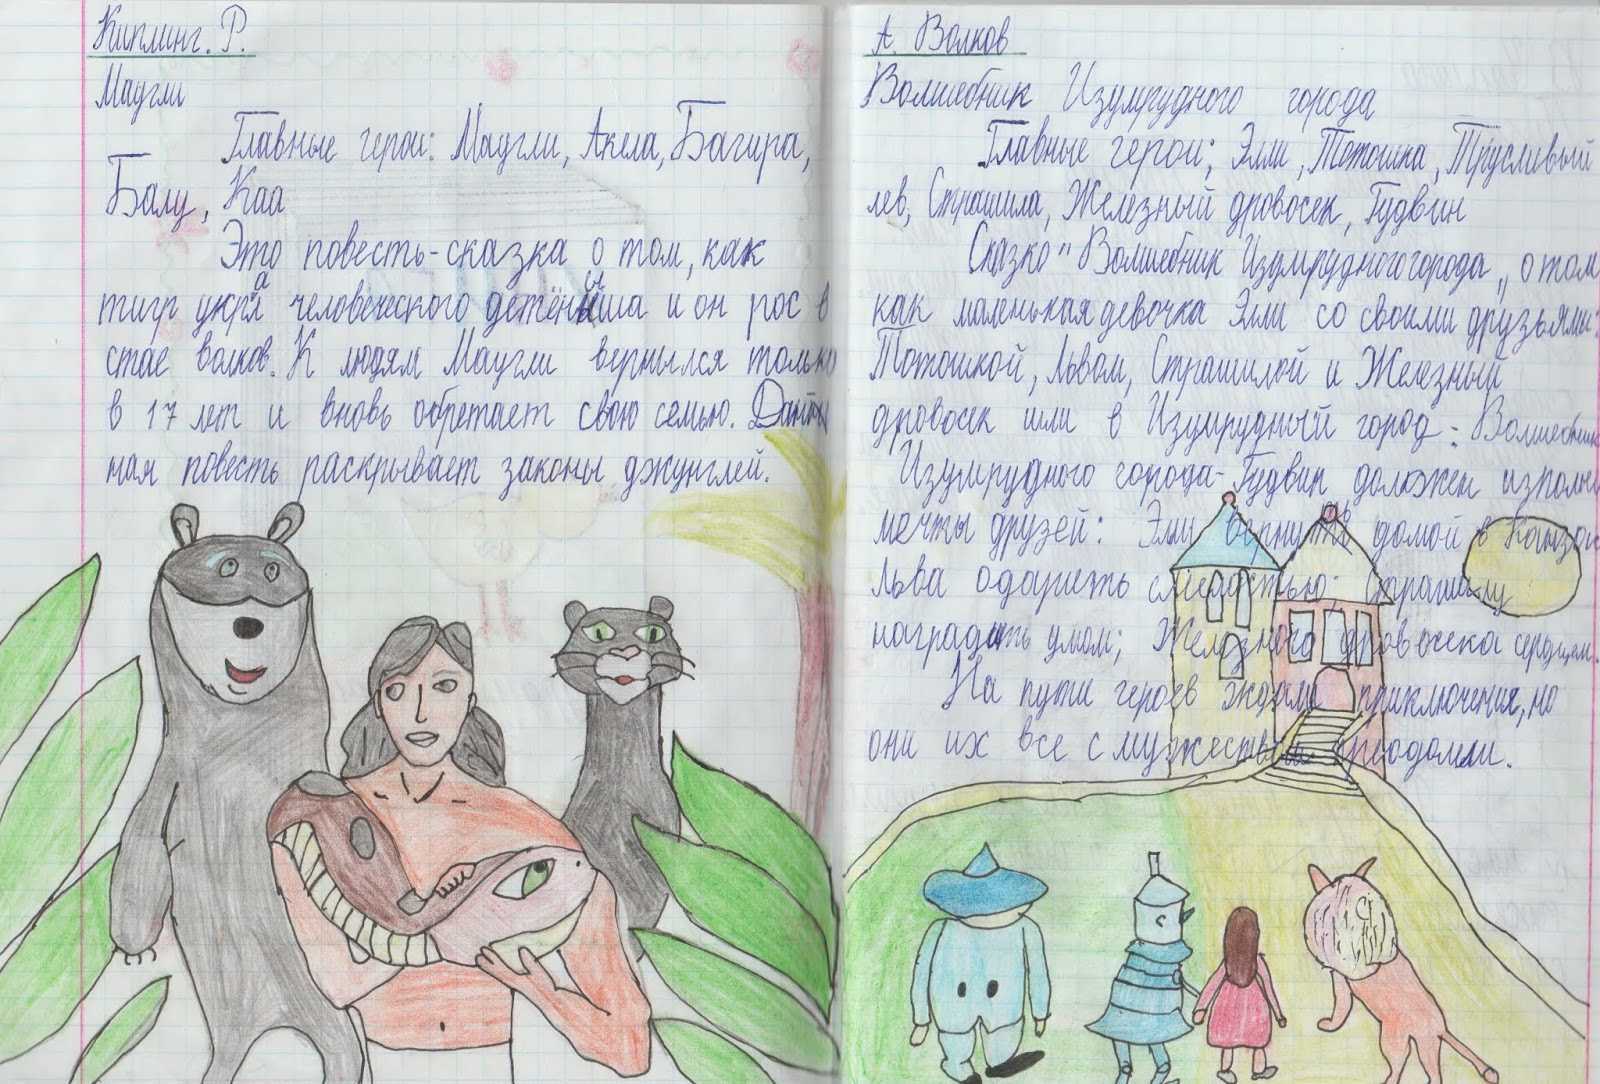 Киплинг. Р.
Маугли
Главные герои: Маугли, Акела, Багира,
Балу, Каа
Это повесть-сказка о том, как
тигр укра человеческого детёныша и он рос в
стае волков. К людям Маугли вернылся только
в 17 лет и вновь обретает свою семью. Данная
повесть раскрывает законы джунглей.
А. Волков
Волшебник Изумрудного города
Главные герои; Элли, Тотошка, Трусливый
лев, Страшила, Железный дровосек, Гудвин
Сказко "Волшебник Изумрудного города„ о том
как маленькая девочка Элли со своими друзьями:
Тотошкой, Львом, Страшилой и Железный
дровосек шли в Изумрудный город: Волшебник
Изумрудного города-Гудвин должен исполни
мечты друзей: Элли вернуть домой в Канзас
Льва одарить смелостью; Страшилу
наградить умом; Железного дровосека сердцем.
На пути героев ждали приключения, но
они их все с мужеством преодолели.